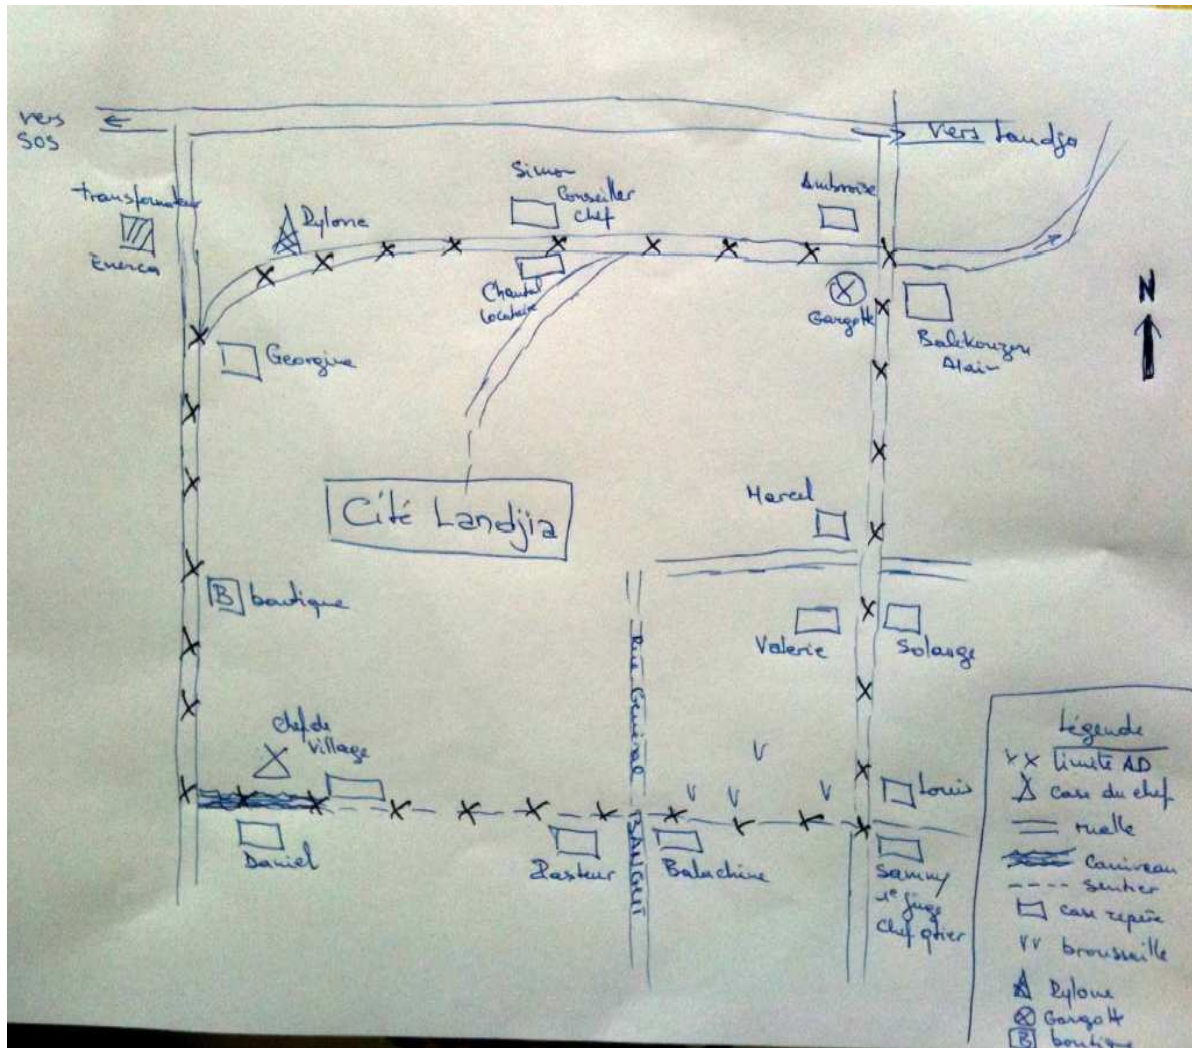 vers
SOS
vers Landja
transformateur
Enerca
Pylone
Simon
Conseiller
Chef
Ambroise
Chantal
locataire
Gargotte
Georgine
Alain
N
Cité Landjia
Marcel
B boutique
Valerie
Solange
Rue General BANGUI
chef de
village
Louis
Daniel
Pasteur
Balachine
Sammy
1e juge
chef qtier
Légende
limite AD
case du chef
ruelle
Caniveau
sentier
case repère
brousaille
Pylone
Gargotte
B boutique